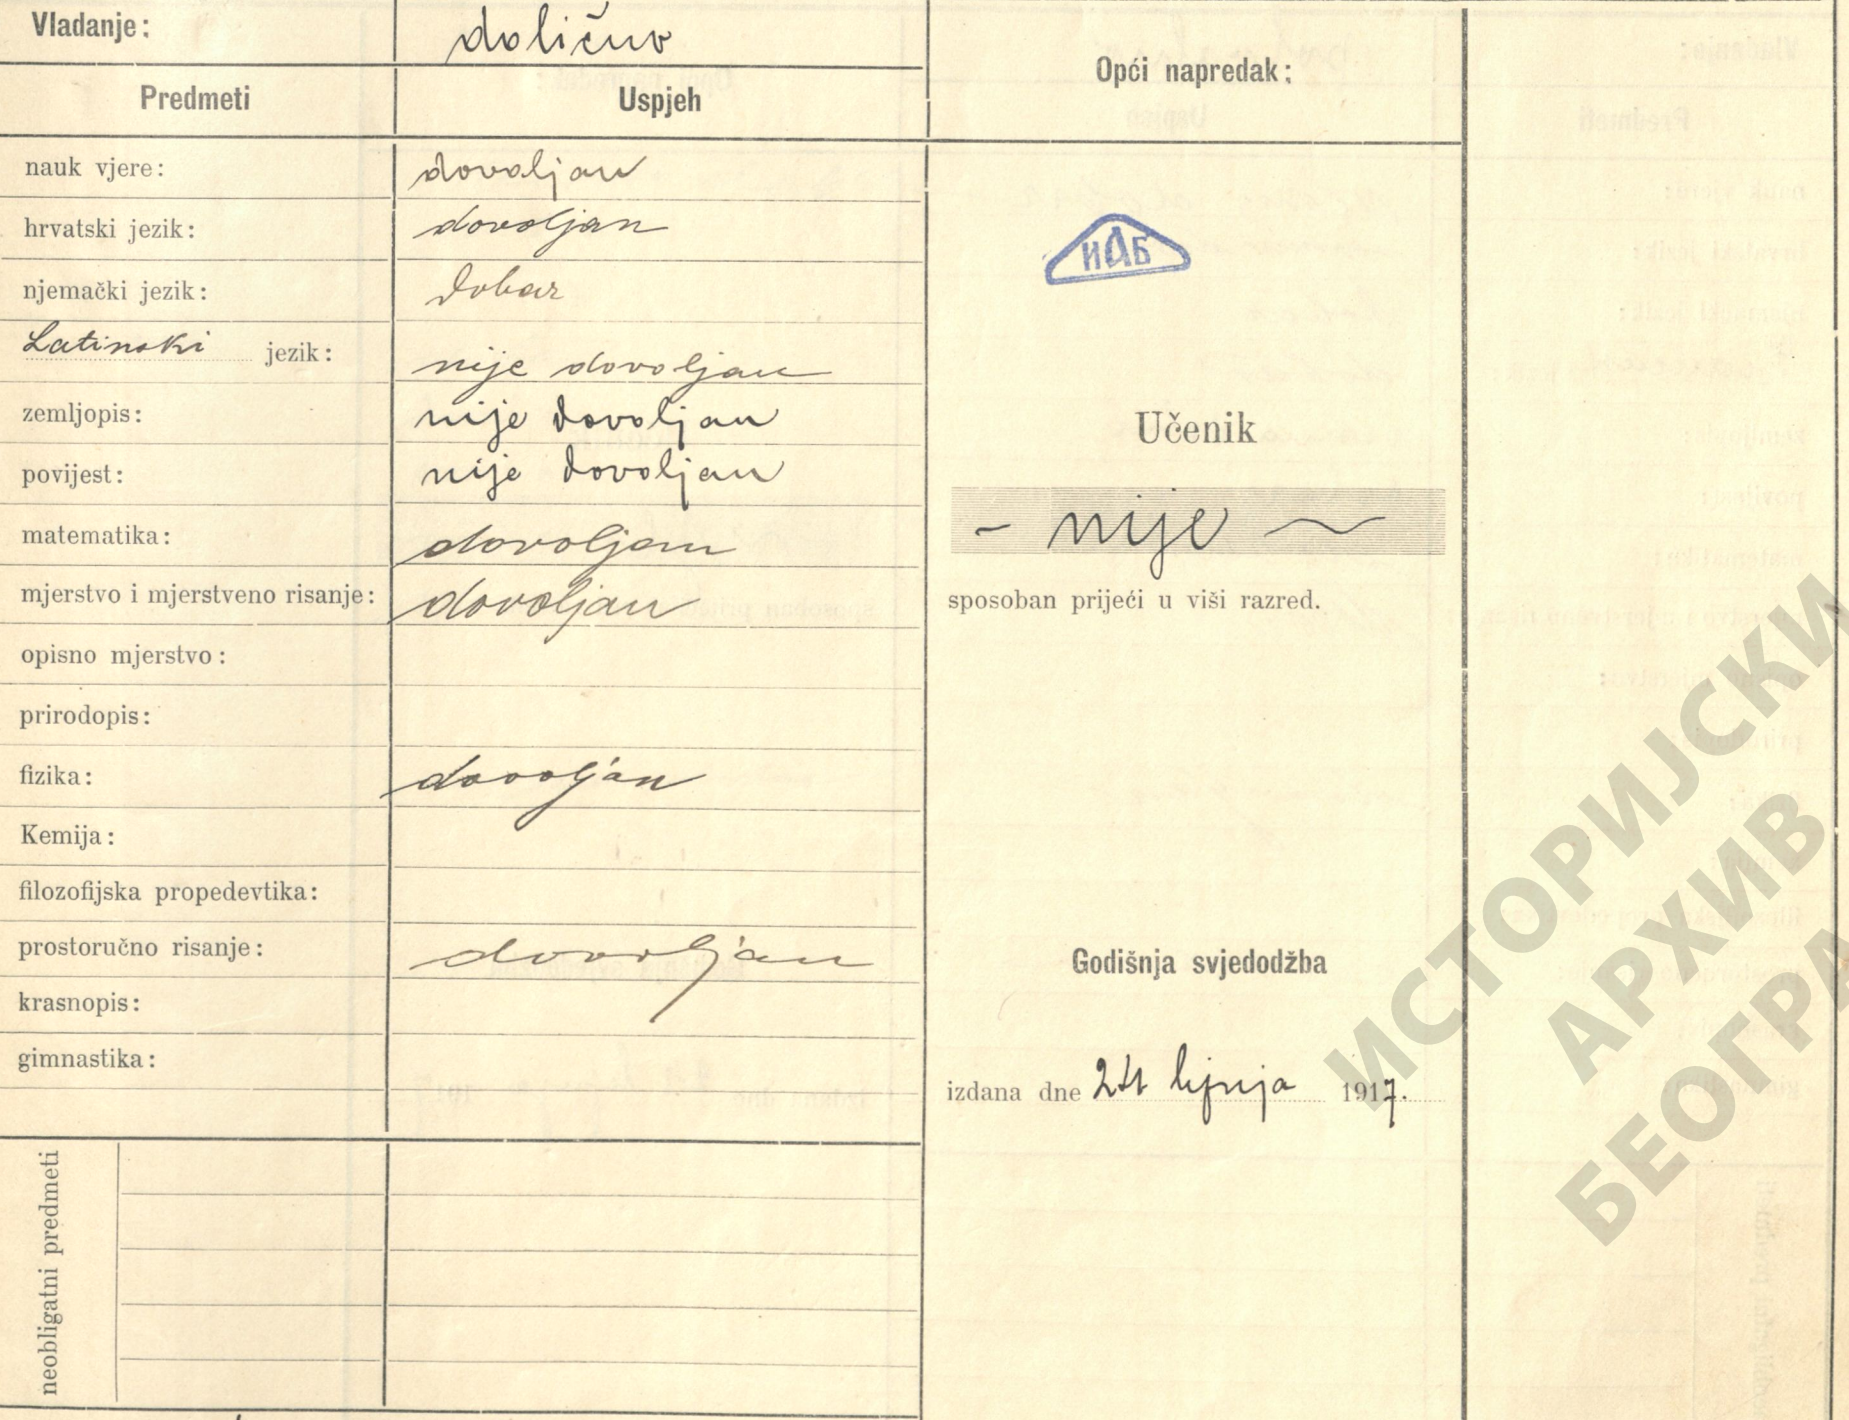 Vladanje: dolično
Predmeti Uspjeh
nauk vjere: dovoljan
hrvatski jezik: dovoljan
njemački jezik: dobar
Latinski jezik: nije dovoljan
zemljopis: nije dovoljan
povijest: nije dovoljan
matematika: dovoljan
mjerstvo i mjerstveno risanje: dovoljan
opisno mjerstvo:
prirodopis:
fizika: dovoljan
Kemija:
filozofijska propedevtika:
prostoručno risanje: dovoljan
krasnopis:
gimnastika:
neobligatni predmeti
Opći napredak:
ИАБ
Učenik
- nije ~
sposoban prijeći u viši razred.
Godišnja svjedodžba
izdana dne lipnja 1917.
ИСТОРИЈСКИ
АРХИВ
БЕОГРА